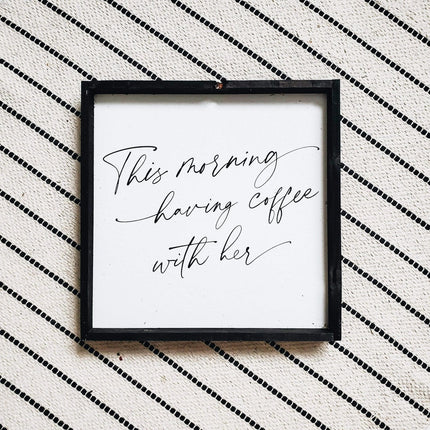 This morning
having coffee
with her